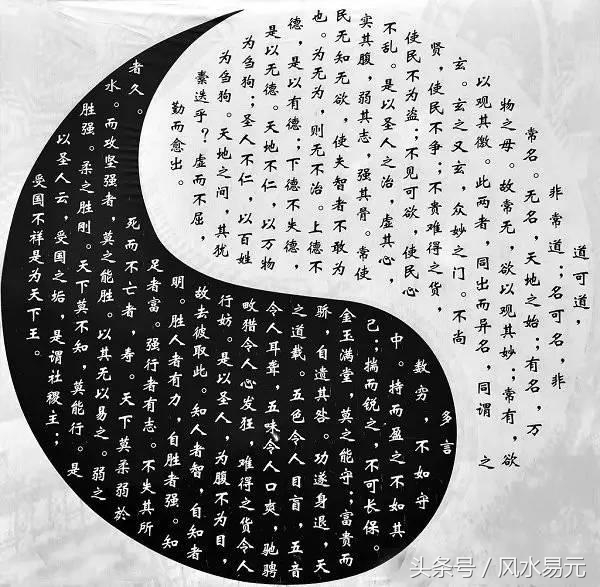 道可道，
非常道；名可名，非
常名。无名，天地之始；有名，万
物之母。故常无，欲以观其妙；常有，欲
以观其徼。此两者，同出而异名，同谓之
玄。玄之又玄，众妙之门。不尚
贤，使民不争；不贵难得之货，
使民不为盗；不见可欲，使民心
不乱。是以圣人之治，虚其心，
实其腹，弱其志，强其骨。常使
民无知无欲，使夫智者不敢为
也。为无为，则无不治。上德不
德，是以有德；下德不失德，
是以无德。天地不仁，以万物
为刍狗；圣人不仁，以百姓
为刍狗。天地之间，其犹
橐迭乎？虚而不屈，
勤而愈出。
多言
数穷，不如守
中。持而盈之不如其
己；揣而锐之，不可长保。
金玉满堂，莫之能守；富贵而
骄，自遗其咎。功遂身退，天
之道载。五色令人目盲，五音
令人耳聋，五味令人口爽，驰骋
畋猎令人心发狂，难得之货令人
行妨。是以圣人，为腹不为目，
故去彼取此。知人者智，自知者
明。胜人者有力，自胜者强。知
足者富。强行者有志。不失其所
者久。死而不亡者，寿。天下莫柔弱於
水。而攻坚强者，莫之能胜。以其无以易之。弱之
胜强。柔之胜刚。天下莫不知，莫能行。是
以圣人云，受国之垢，是谓社稷主；
受国不祥是为天下王。
头条号 / 风水易元